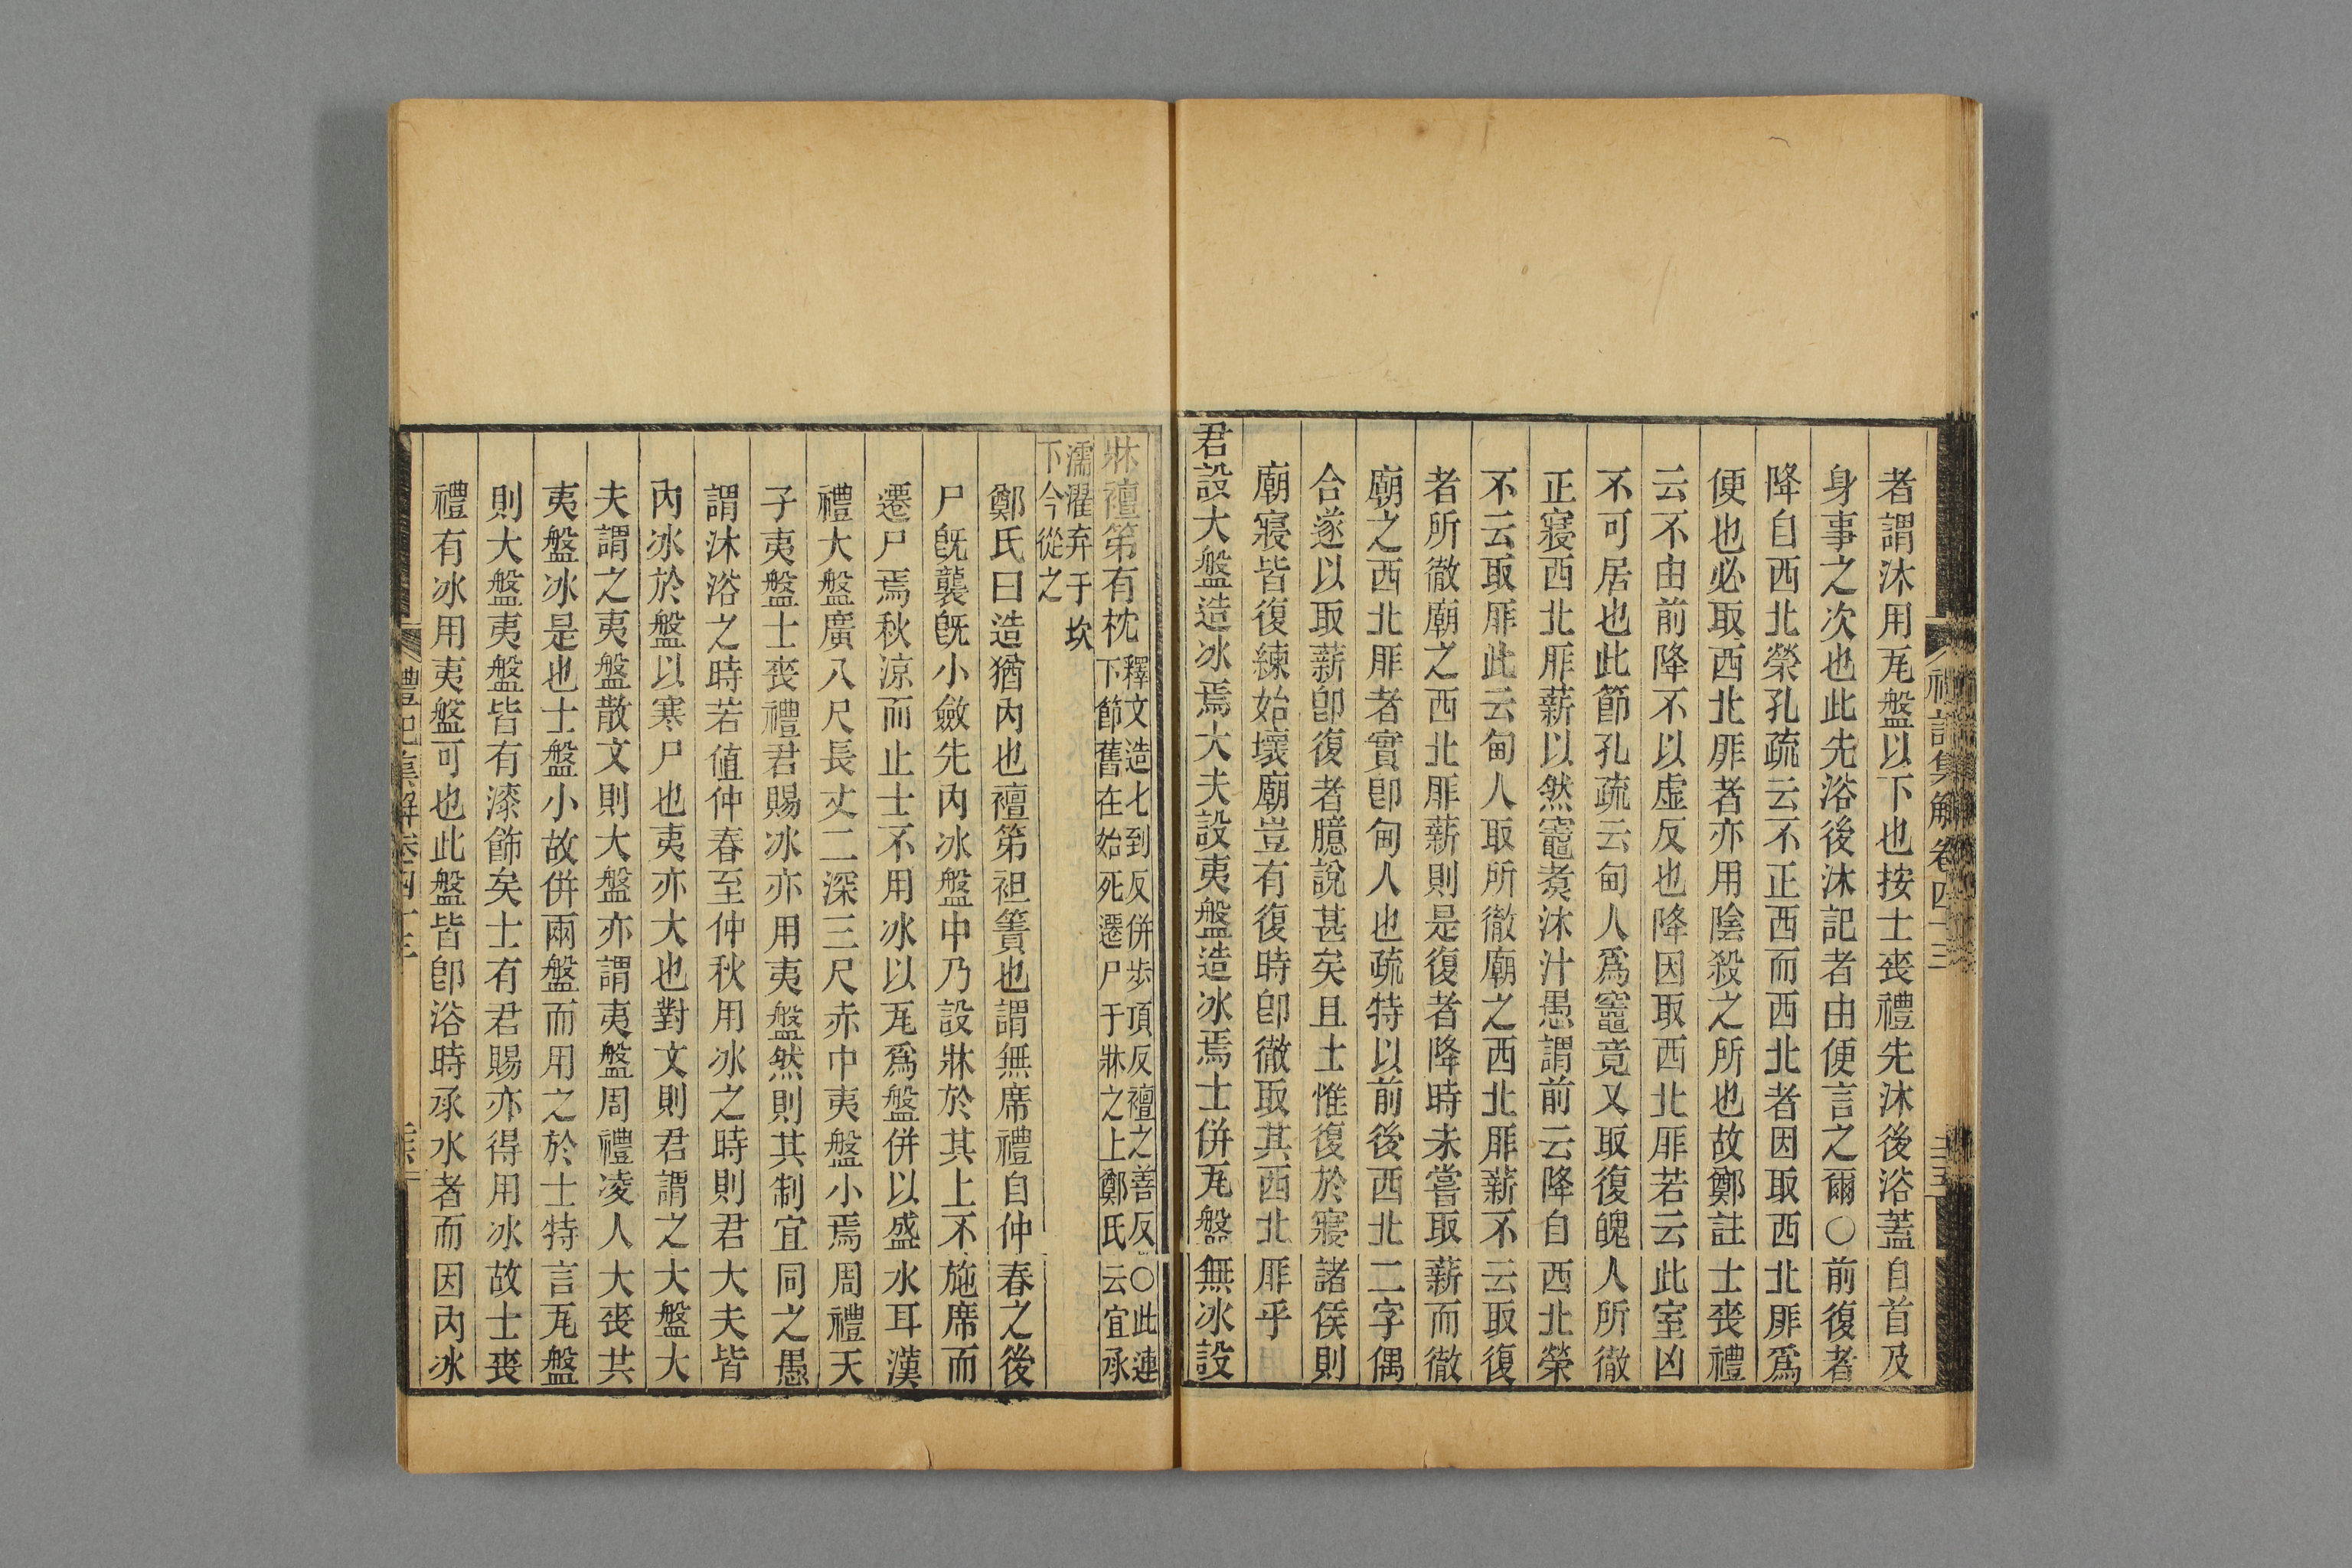 者謂沐用瓦盤以下也按士喪禮先沐後浴蓋自首及
身事之次也此先浴後沐記者由便言之爾○前復者
降自西北榮孔疏云不正西而西北者因取西北厞爲
便也必取西北厞者亦用陰殺之所也故鄭註士喪禮
云不由前降不以虛反也降因取西北厞若云此室凶
不可居也此節孔疏云甸人爲竈竟又取復魄人所徹
正寢西北厞薪以然竈煑沐汁愚謂前云降自西北榮
不云取厞此云甸人取所徹廟之西北厞薪不云取復
者所徹廟之西北厞薪則是復者降時未嘗取薪而徹
廟之西北厞者實卽甸人也疏特以前後西北二字偶
合遂以取薪卽復者臆說甚矣且士惟復於寢諸侯則
廟寢皆復練始壞廟豈有復時卽徹取其西北厞乎
君設大盤造冰焉大夫設夷盤造冰焉士併瓦盤無冰設
牀襢第有枕釋文造七到反併步頂反襢之善反○此連
下節舊在始死遷尸于牀之上鄭氏云宜承
濡濯弃于坎
下今從之
鄭氏曰造猶內也襢第袒簀也謂無席禮自仲春之後
尸旣襲旣小斂先內冰盤中乃設牀於其上不施席而
遷尸焉秋涼而止士不用冰以瓦爲盤併以盛水耳漢
禮大盤廣八尺長丈二深三尺赤中夷盤小焉周禮天
子夷盤士喪禮君賜冰亦用夷盤然則其制宜同之愚
謂沐浴之時若值仲春至仲秋用冰之時則君大夫皆
內冰於盤以寒尸也夷亦大也對文則君謂之大盤大
夫謂之夷盤散文則大盤亦謂夷盤周禮凌人大喪共
夷盤冰是也士盤小故併兩盤而用之於士特言瓦盤
則大盤夷盤皆有漆飾矣士有君賜亦得用冰故士喪
禮有冰用夷盤可也此盤皆卽浴時承水者而因內冰